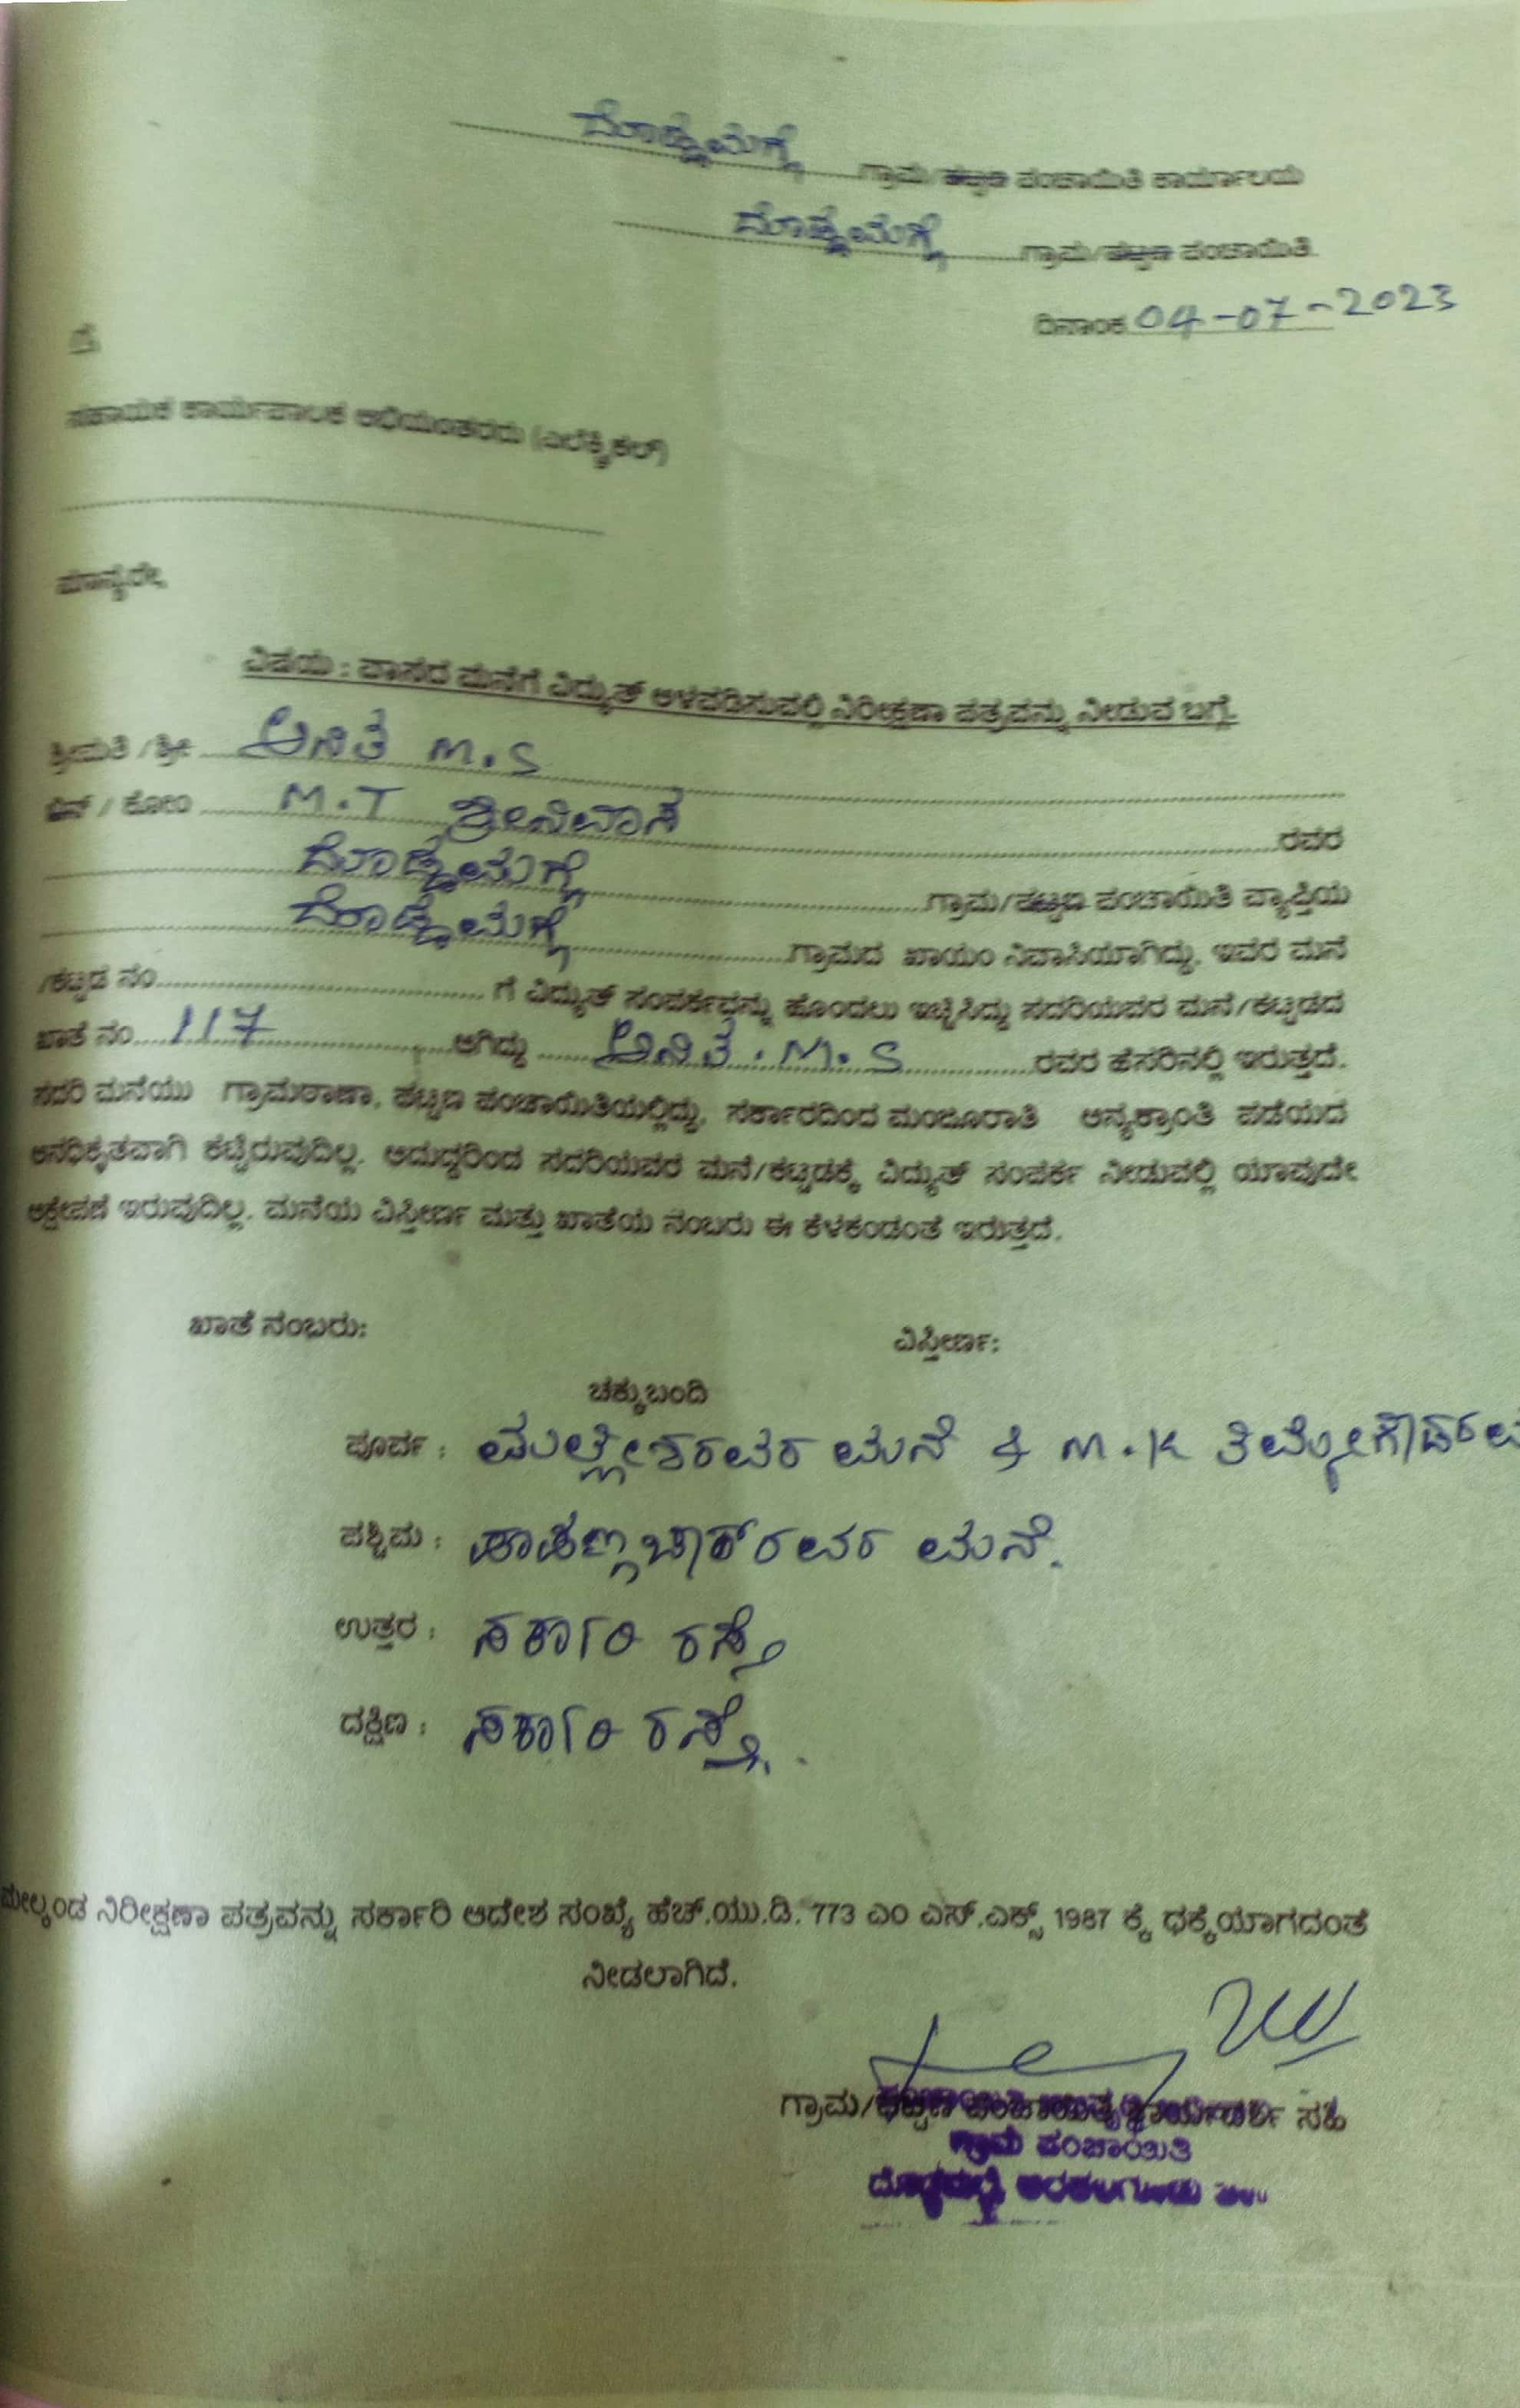 ದೊಡ್ಡಮಗ್ಗೆ ಗ್ರಾಮ/ಪಟ್ಟಣ ಪಂಚಾಯಿತಿ ಕಾರ್ಯಾಲಯ
ದೊಡ್ಡಮಗ್ಗೆ ಗ್ರಾಮ/ಪಟ್ಟಣ ಪಂಚಾಯಿತಿ.
ದಿನಾಂಕ 04-07-2023
ಗೆ,
ಸಹಾಯಕ ಕಾರ್ಯಪಾಲಕ ಅಭಿಯಂತರರು (ಎಲೆಕ್ಟ್ರಿಕಲ್)
ಮಾನ್ಯರೇ,
ವಿಷಯ : ವಾಸದ ಮನೆಗೆ ವಿದ್ಯುತ್ ಅಳವಡಿಸುವಲ್ಲಿ ನಿರೀಕ್ಷಣಾ ಪತ್ರವನ್ನು ನೀಡುವ ಬಗ್ಗೆ.
ಶ್ರೀಮತಿ /ಶ್ರೀ ಅನಿತ M.S
ಬಿನ್ / ಕೋಂ M.T ಶ್ರೀನಿವಾಸ ರವರ
ದೊಡ್ಡಮಗ್ಗೆ ಗ್ರಾಮ/ಪಟ್ಟಣ ಪಂಚಾಯಿತಿ ವ್ಯಾಪ್ತಿಯ
ದೊಡ್ಡಮಗ್ಗೆ ಗ್ರಾಮದ ಖಾಯಂ ನಿವಾಸಿಯಾಗಿದ್ದು, ಇವರ ಮನೆ
/ಕಟ್ಟಡ ನಂ. ಗೆ ವಿದ್ಯುತ್ ಸಂಪರ್ಕವನ್ನು ಹೊಂದಲು ಇಚ್ಚಿಸಿದ್ದು ಸದರಿಯವರ ಮನೆ/ಕಟ್ಟಡದ
ಖಾತೆ ನಂ. 117 ಆಗಿದ್ದು ಅನಿತ. M.S ರವರ ಹೆಸರಿನಲ್ಲಿ ಇರುತ್ತದೆ.
ಸದರಿ ಮನೆಯು ಗ್ರಾಮಠಾಣಾ, ಪಟ್ಟಣ ಪಂಚಾಯಿತಿಯಲ್ಲಿದ್ದು, ಸರ್ಕಾರದಿಂದ ಮಂಜೂರಾತಿ ಅನ್ಯಕ್ರಾಂತಿ ಪಡೆಯದ
ಅನಧಿಕೃತವಾಗಿ ಕಟ್ಟಿರುವುದಿಲ್ಲ. ಆದುದ್ದರಿಂದ ಸದರಿಯವರ ಮನೆ/ಕಟ್ಟಡಕ್ಕೆ ವಿದ್ಯುತ್ ಸಂಪರ್ಕ ನೀಡುವಲ್ಲಿ ಯಾವುದೇ
ಆಕ್ಷೇಪಣೆ ಇರುವುದಿಲ್ಲ. ಮನೆಯ ವಿಸ್ತೀರ್ಣ ಮತ್ತು ಖಾತೆಯ ನಂಬರು ಈ ಕೆಳಕಂಡಂತೆ ಇರುತ್ತದೆ.
ಖಾತೆ ನಂಬರು: ವಿಸ್ತೀರ್ಣ:
ಚಕ್ಕುಬಂದಿ
ಪೂರ್ವ : ಮಲ್ಲೇಶರವರ ಮನೆ & M.K ತಿಮ್ಮೇಗೌಡರವ
ಪಶ್ಚಿಮ : ಪಾಪಣ್ಣಚಾರ್‌ರವರ ಮನೆ.
ಉತ್ತರ : ಸರ್ಕಾರಿ ರಸ್ತೆ
ದಕ್ಷಿಣ : ಸರ್ಕಾರಿ ರಸ್ತೆ.
ಮೇಲ್ಕಂಡ ನಿರೀಕ್ಷಣಾ ಪತ್ರವನ್ನು ಸರ್ಕಾರಿ ಆದೇಶ ಸಂಖ್ಯೆ ಹೆಚ್.ಯು.ಡಿ. 773 ಎಂ ಎಸ್.ಎಕ್ಸ್ 1987 ಕ್ಕೆ ಧಕ್ಕೆಯಾಗದಂತೆ
ನೀಡಲಾಗಿದೆ.
ಗ್ರಾಮ/ಪಟ್ಟಣ ಪಂಚಾಯಿತಿ ಕಾರ್ಯದರ್ಶಿ ಸಹಿ
ಗ್ರಾಮ ಪಂಚಾಯಿತಿ
ದೊಡ್ಡಮಗ್ಗೆ ಅರಕಲಗೂಡು